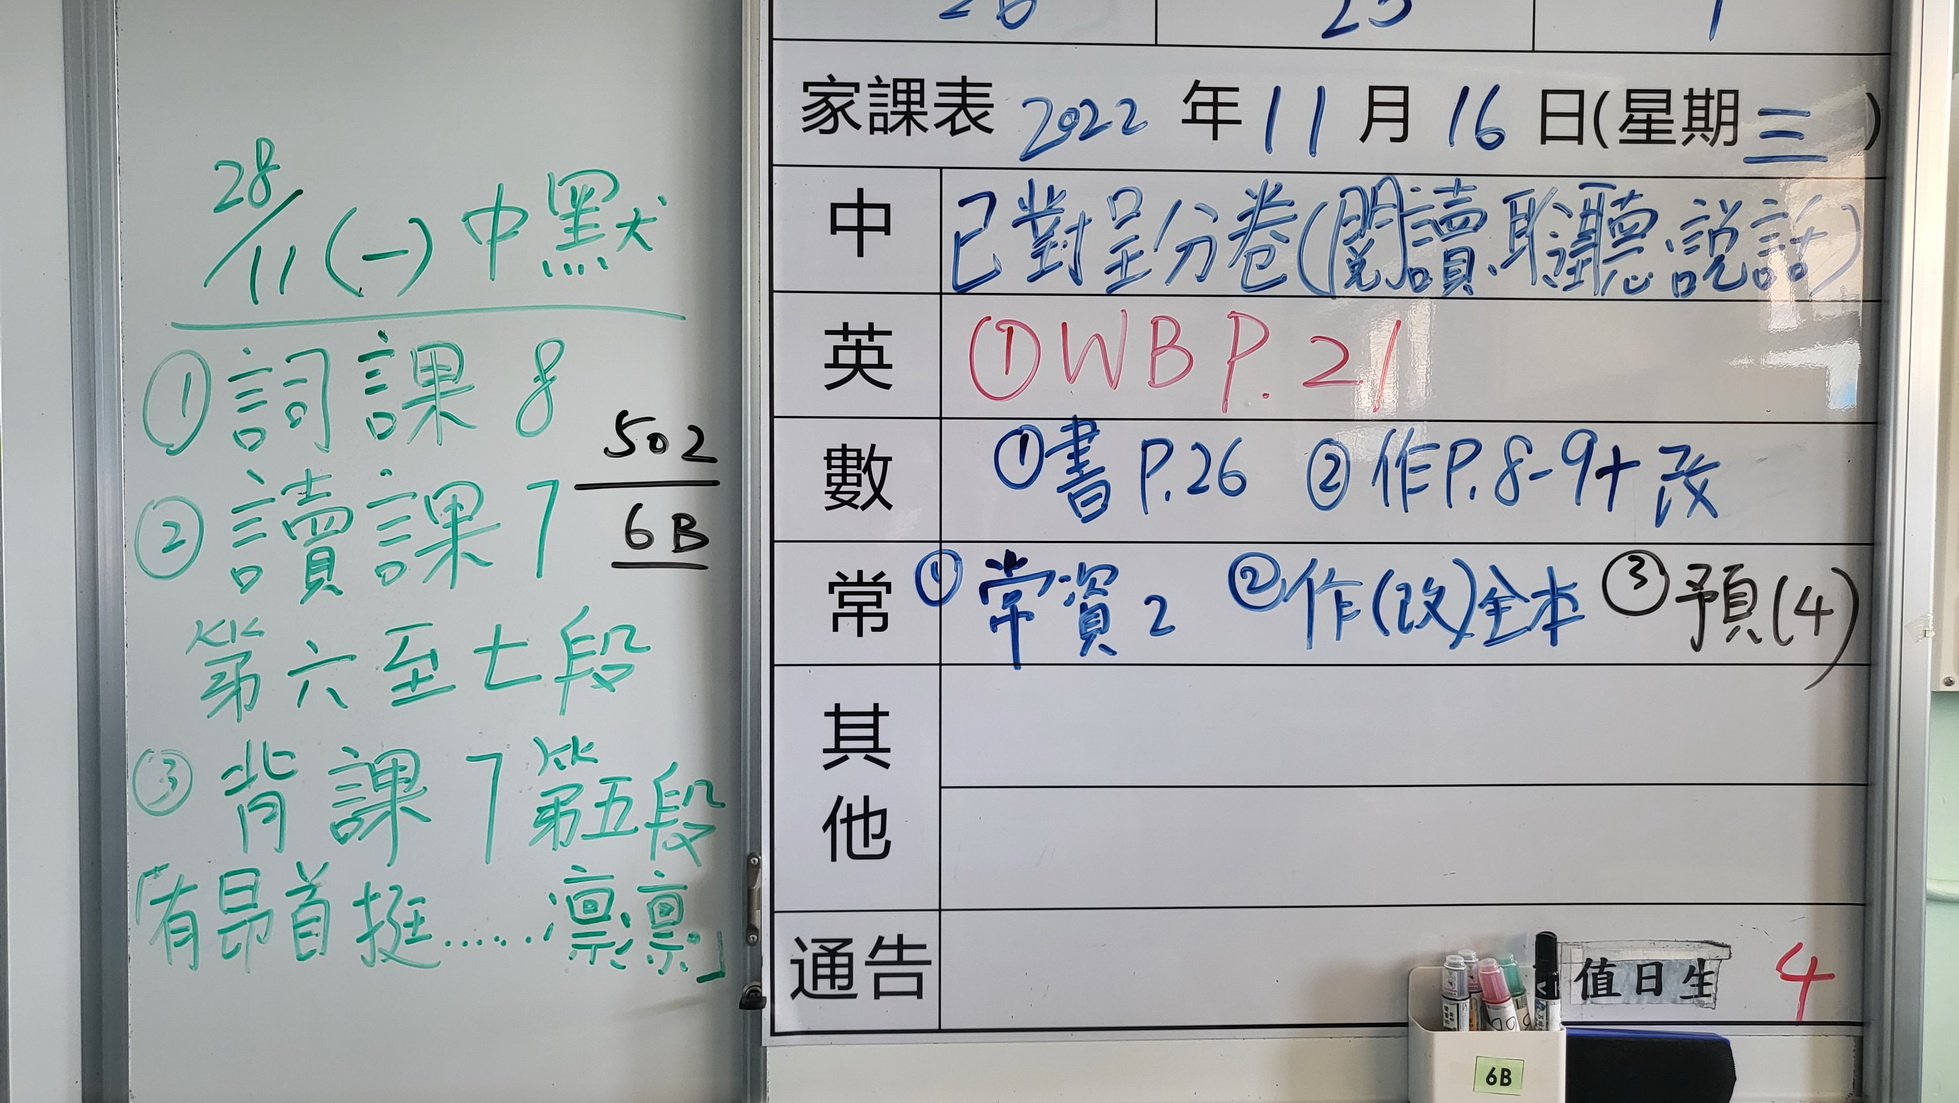 28/11(一)中默
①詞課8
②讀課7
第六至七段
③背課7第五段
「有昂首挺......凛凛」
502
6B
家課表 2022 年 11 月 16 日(星期三)
中 已對呈分卷(閱讀、聆聽、説話)
英 ①WB P.21
數 ①書P.26 ②作P.8-9+改
常 ①常資2 ②作(改)全本 ③預(4)
其他
通告
值日生 4
6B